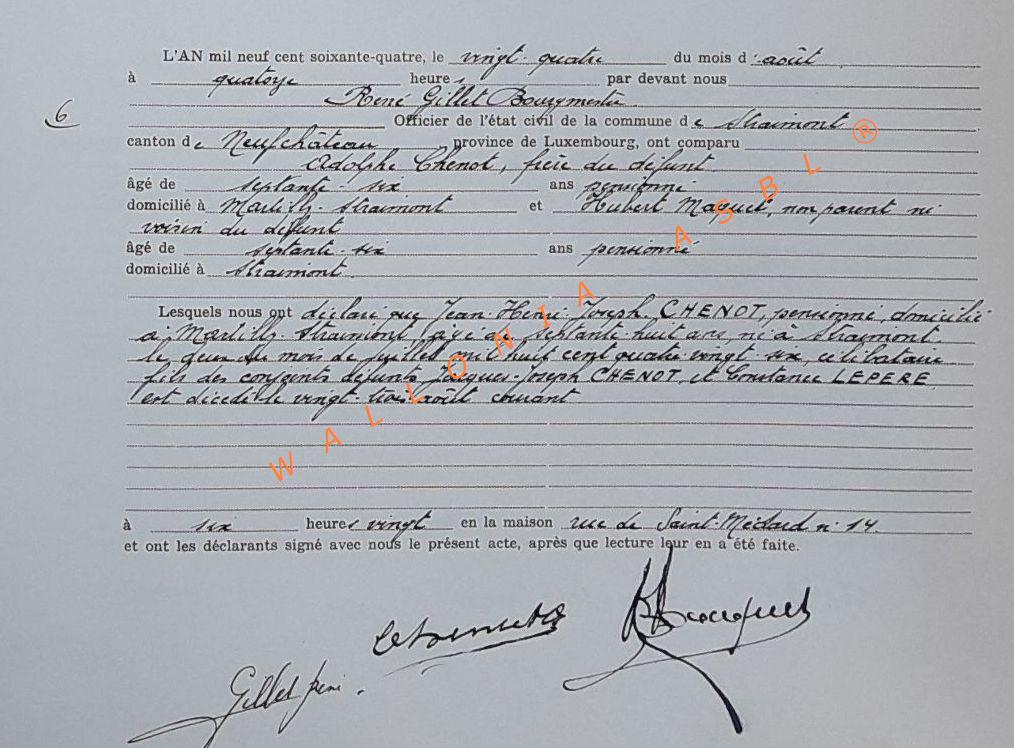 L'AN mil neuf cent soixante-quatre, le vingt-quatre du mois d'août
à quatorze heures par devant nous
René Gillet Bourgmestre
6
Officier de l'état civil de la commune de Straimont
canton de Neufchâteau province de Luxembourg, ont comparu
Adolphe Chenot, frère du défunt
âgé de septante-six ans pensionné
domicilié à Martilly-Straimont et Hubert Maquet, non parent ni
voisin du défunt
âgé de septante-six ans pensionné
domicilié à Straimont
Lesquels nous ont déclaré que Jean-Henri-Joseph CHENOT, pensionné, domicilié
à Martilly-Straimont, âgé de septante huit ans, né à Straimont
le deux du mois de juillet mil huit cent quatre-vingt-six, célibataire
fils des conjoints défunts Jacques-Joseph CHENOT, et Constance LEPERE
est décédé le vingt-trois août courant
à six heures vingt en la maison rue de Saint-Médard n° 14.
et ont les déclarants signé avec nous le présent acte, après que lecture leur en a été faite.
Gillet René.
WALLONIA ASBL ®